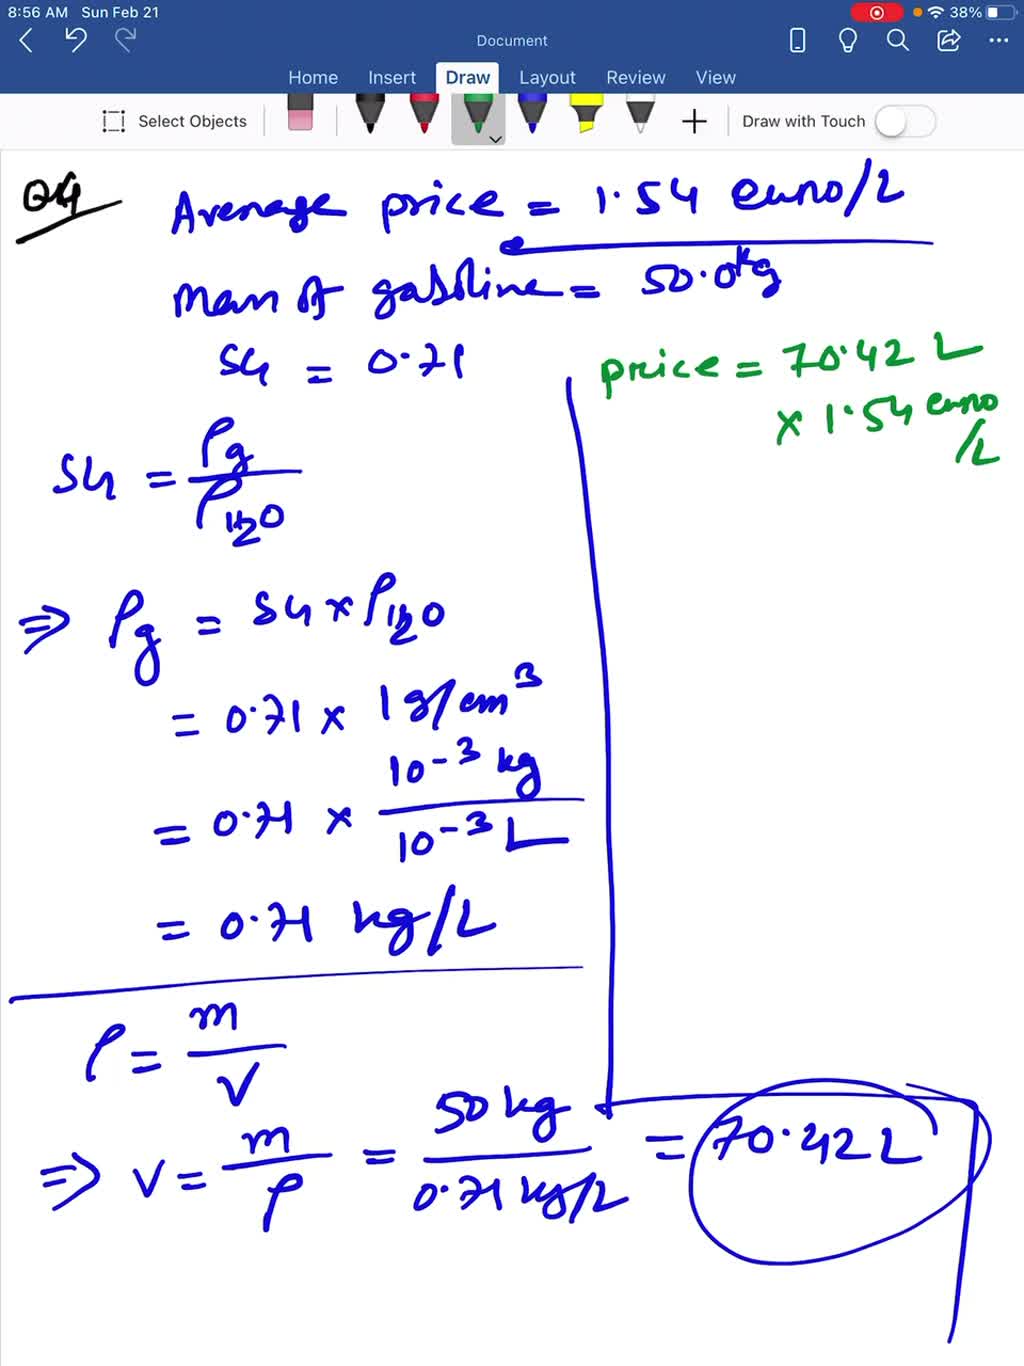 8:56 AM Sun Feb 21 38%
Document
Home Insert Draw Layout Review View
Select Objects Draw with Touch
Q4
Average price = 1.54 euro/L
Mass of gasoline = 50.0kg
SG = 0.71
SG = ρg / ρH2O
⇒ ρg = SG × ρH2O
= 0.71 × 1 g/cm³
= 0.71 × 10⁻³ kg / 10⁻³ L
= 0.71 kg/L
ρ = m / V
⇒ V = m / ρ = 50 kg / 0.71 kg/L = 70.42 L
price = 70.42 L
× 1.54 euro
/L